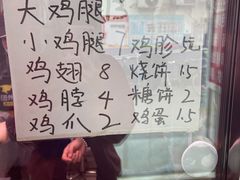 大鸡腿
小鸡腿 7 鸡胗 5元
鸡翅 8 烧饼 1.5
鸡脖 4 糖饼 2
鸡爪 2 鸡蛋 1.5